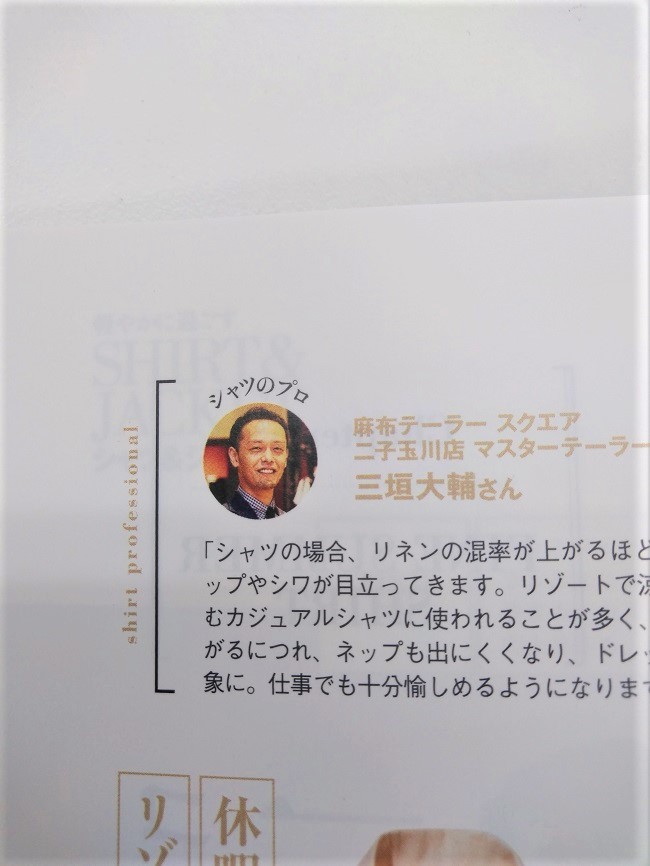 シャツのプロ
麻布テーラー スクエア
二子玉川店 マスターテーラー
三垣大輔さん
shirt professional
「シャツの場合、リネンの混率が上がるほど
ップやシワが目立ってきます。リゾートで涼
むカジュアルシャツに使われることが多く、
がるにつれ、ネップも出にくくなり、ドレッ
象に。仕事でも十分愉しめるようになります
休暇
リゾ
SHIRT&